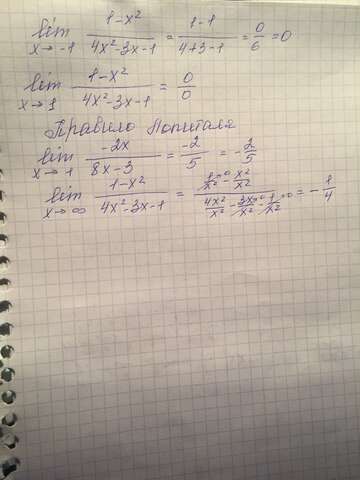 lim x→-1 (1-x²)/(4x²-3x-1) = (1-1)/(4+3-1) = 0/6 = 0
lim x→1 (1-x²)/(4x²-3x-1) = 0/0
Правило Лопиталя
lim x→1 (-2x)/(8x-3) = -2/5 = -2/5
lim x→∞ (1-x²)/(4x²-3x-1) = (1/x²→0 - x²/x²)/(4x²/x² - 3x/x²→0 - 1/x²→0) = -1/4